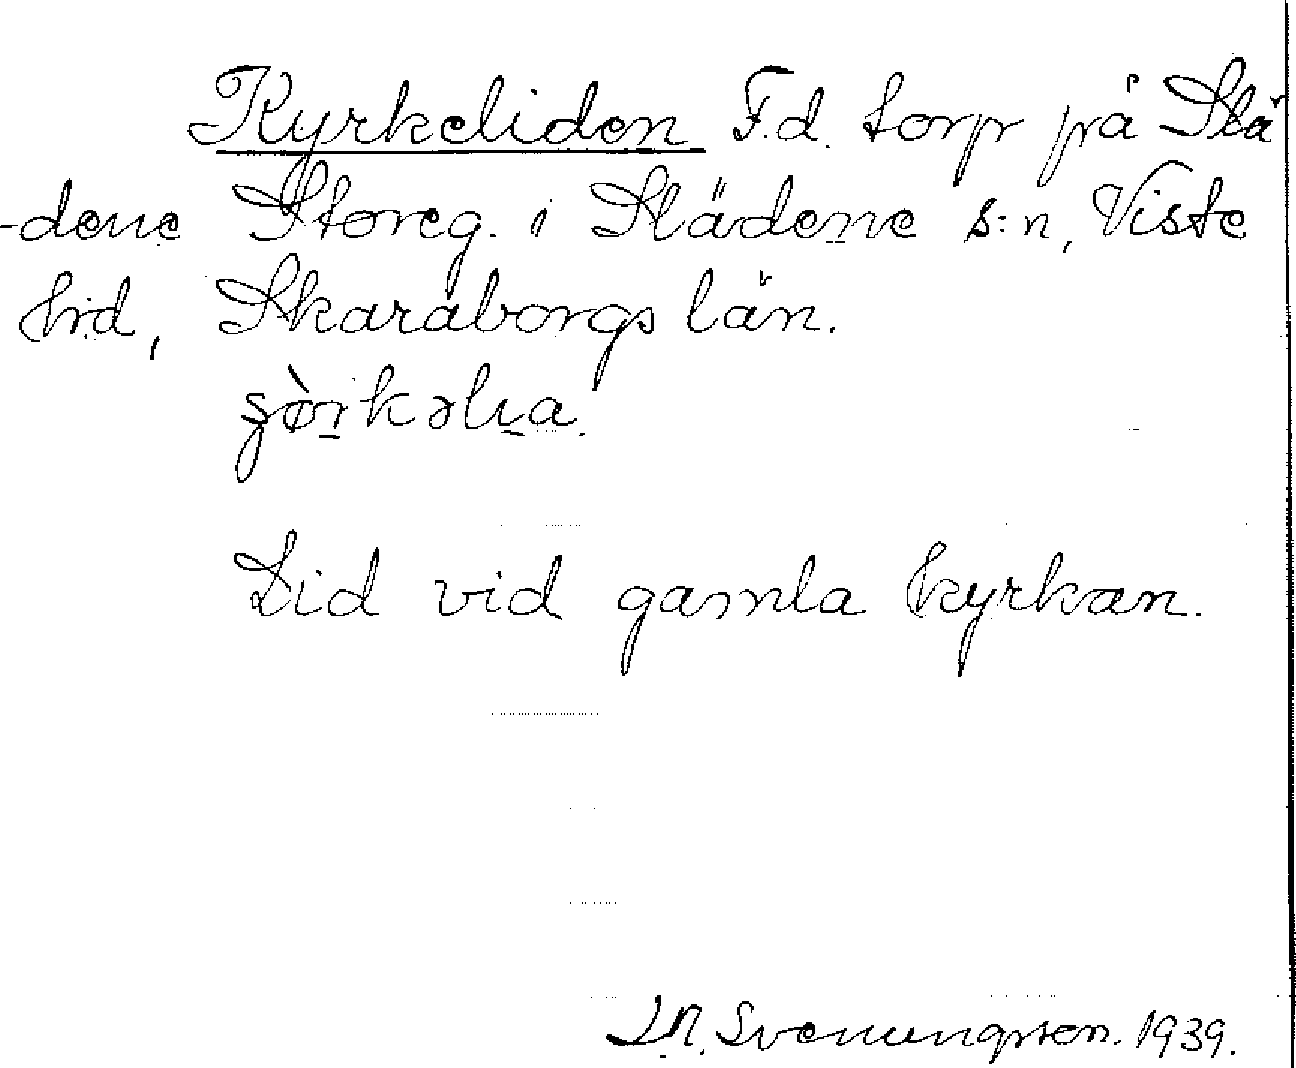 Kyrkeliden F.d. torp på Slä
-dene Storeg. i Slädene s:n, Viste
hd, Skaraborgs län.
Lid vid gamla kyrkan.
Svenungsson. 1939.